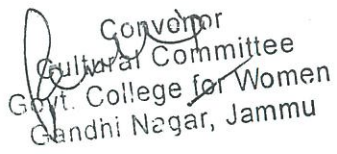 Convenor
Cultural Committee
Govt. College for Women
Gandhi Nagar, Jammu